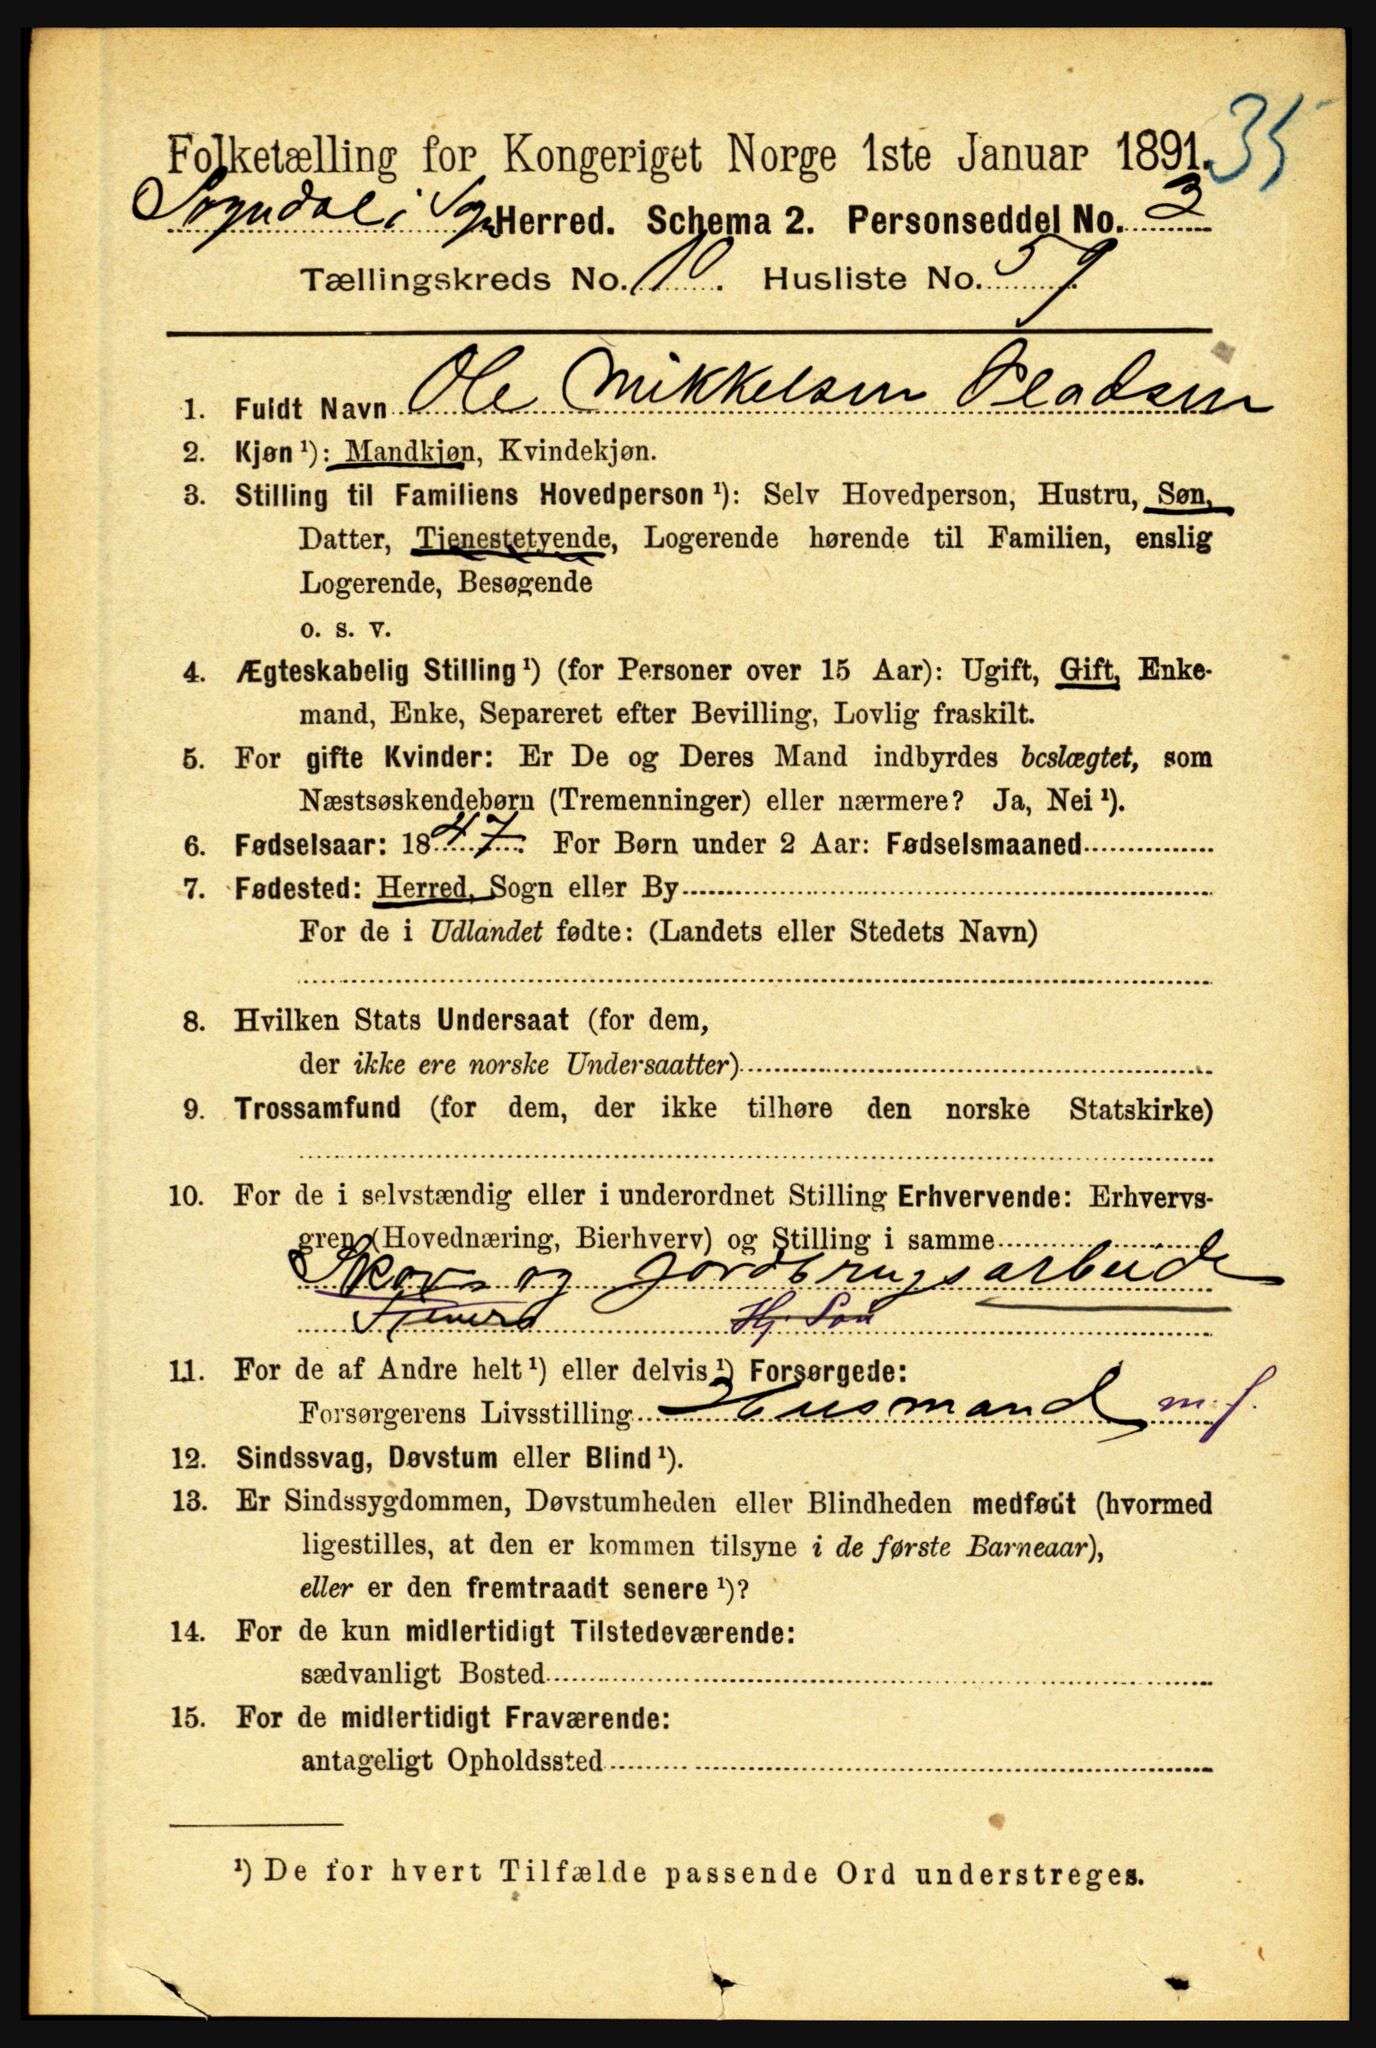 35
Folketælling for Kongeriget Norge 1ste Januar 1891.
Sogndal i Sogn Herred. Schema 2. Personseddel No. 3
Tællingskreds No. 10. Husliste No. 59.
1. Fuldt Navn Ole Mikkelsen Pladsen
2. Kjøn ¹): Mandkjøn, Kvindekjøn.
3. Stilling til Familiens Hovedperson ¹): Selv Hovedperson, Hustru, Søn,
Datter, Tjenestetyende, Logerende hørende til Familien, enslig
Logerende, Besøgende
o. s. v.
4. Ægteskabelig Stilling ¹) (for Personer over 15 Aar): Ugift, Gift, Enke-
mand, Enke, Separeret efter Bevilling, Lovlig fraskilt.
5. For gifte Kvinder: Er De og Deres Mand indbyrdes beslægtet, som
Næstsøskendebørn (Tremenninger) eller nærmere? Ja, Nei ¹).
6. Fødselsaar: 1847. For Børn under 2 Aar: Fødselsmaaned
7. Fødested: Herred, Sogn eller By
For de i Udlandet fødte: (Landets eller Stedets Navn)
8. Hvilken Stats Undersaat (for dem,
der ikke ere norske Undersaatter)
9. Trossamfund (for dem, der ikke tilhøre den norske Statskirke)
10. For de i selvstændig eller i underordnet Stilling Erhvervende: Erhvervs-
gren (Hovednæring, Bierhverv) og Stilling i samme
Skov- og Jordbrugsarbeide
Hj. Søn
11. For de af Andre helt ¹) eller delvis ¹) Forsørgede:
Forsørgerens Livsstilling Husmand m. J.
12. Sindssvag, Døvstum eller Blind ¹).
13. Er Sindssygdommen, Døvstumheden eller Blindheden medfødt (hvormed
ligestilles, at den er kommen tilsyne i de første Barneaar),
eller er den fremtraadt senere ¹)?
14. For de kun midlertidigt Tilstedeværende:
sædvanligt Bosted
15. For de midlertidigt Fraværende:
antageligt Opholdssted
¹) De for hvert Tilfælde passende Ord understreges.